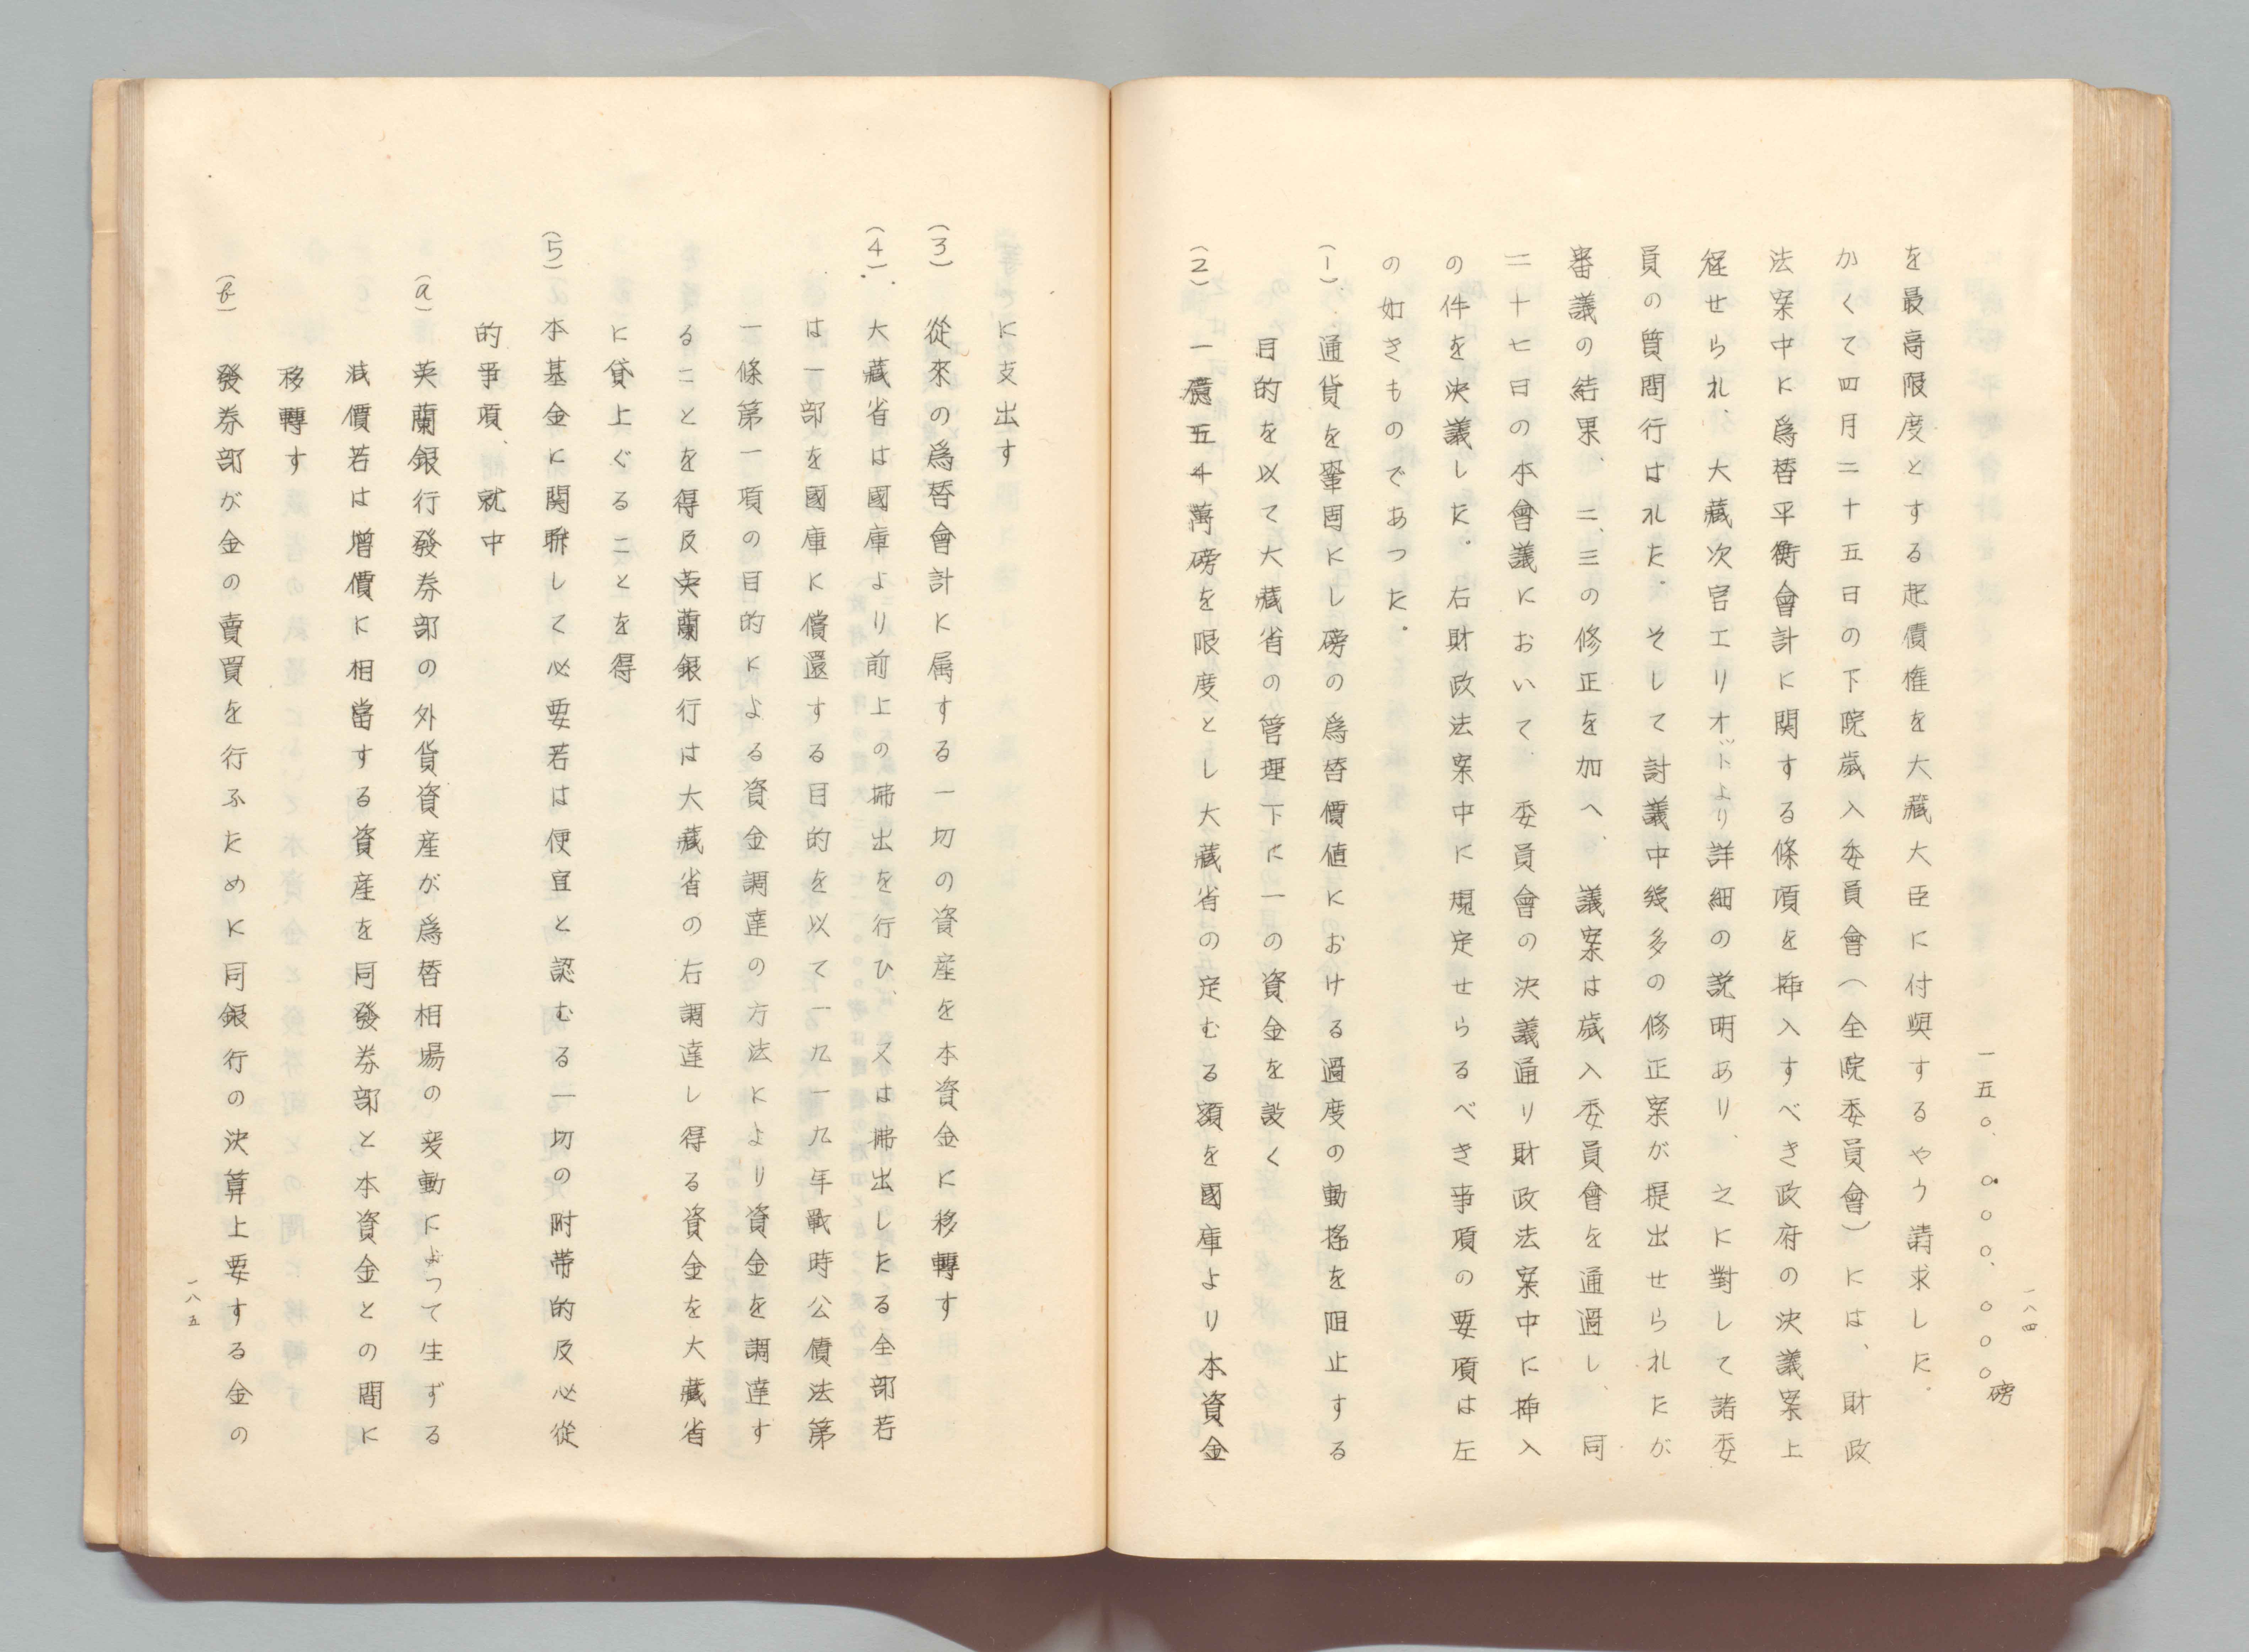 一八四
一五〇、〇〇〇、〇〇〇磅
を最高限度とする起債権を大藏大臣に付與するやう請求した.
かくて四月二十五日の下院歳入委員會(全院委員會)には、財政
法案中に爲替平衡會計に関する條項を挿入すべき政府の決議案上
程せられ、大藏次官エリオットより詳細の説明あり、之に對して諸委
員の質問行はれた.そして討議中幾多の修正案が提出せられたが
審議の結果、二、三の修正を加へ、議案は歳入委員會を通過し、同
二十七日の本會議において、委員會の決議通り財政法案中に挿入
の件を決議した.右財政法案中に規定せらるべき事項の要項は左
の如きものであつた.
(1) 通貨を鞏固にし磅の爲替價値における過度の動揺を阻止する
目的を以て大藏省の管理下に一の資金を設く
(2) 一億五千萬磅を限度とし大藏省の定むる額を國庫より本資金
に支出す
(3) 從來の爲替會計に属する一切の資産を本資金に移轉す
(4) 大藏省は國庫より前上の拂出を行ひ、又は拂出したる全部若
は一部を國庫に償還する目的を以て一九一九年戰時公債法第
一條第一項の目的による資金調達の方法により資金を調達す
ることを得及英蘭銀行は大藏省の右調達し得る資金を大藏省
に貸上ぐることを得
(5) 本基金に関聯して必要若は便宜と認むる一切の附帶的及必從
的事項、就中
(a) 英蘭銀行發券部の外貨資産が爲替相場の変動によつて生ずる
減價若は增價に相當する資産を同發券部と本資金との間に
移轉す
(b) 發券部が金の賣買を行ふために同銀行の決算上要する金の
一八五